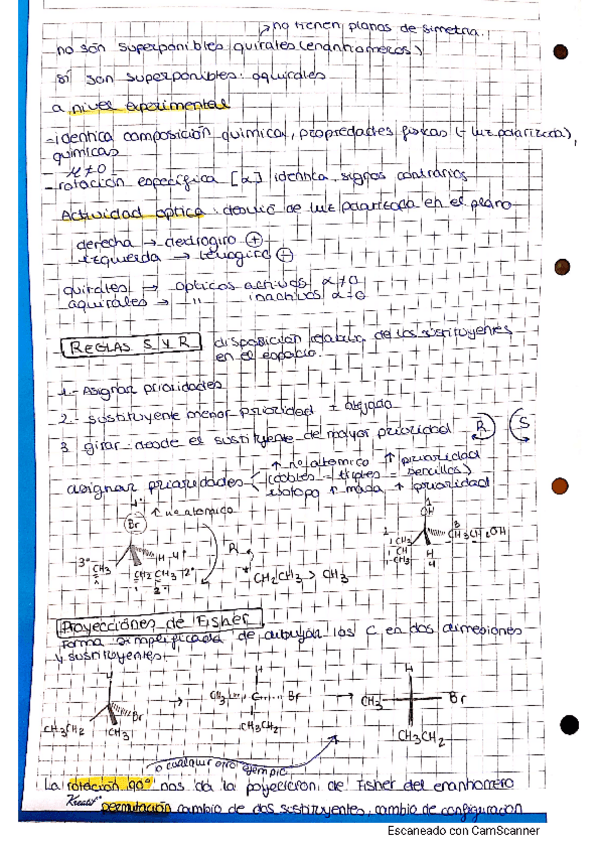 no tienen planos de simetria.
no son superponibles: quirales (enantiomeros)
si son superponibles: aquirales
a nivel experimental
- identica composición química, propiedades físicas (- luz polarizada),
químicas
- rotación específica [α] identica, signos contrarios
Actividad óptica: desvío de luz polarizada en el plano
derecha → dextrogiro (+)
izquierda → levogiro (-)
quirales → opticos activos α≠0
aquirales → " inactivos α=0
REGLAS S y R disposición relativa de los sustituyentes
en el espacio.
1.- Asignar prioridades
2.- sustituyente menor prioridad = alejada
3. girar desde el sustituyente de mayor prioridad R S
asignar prioridades
↑ nº atomico ↑ prioridad
(dobles - triples - sencillos)
isotopo ↑ masa ↑ prioridad
1º ↑ nº atomico
Br
3º CH3
H 4º
CH2 CH3 2º
R
CH2CH3 > CH3
1
OH
2
CH3
CH
CH3
3
CH2CH2OH
H
4
Proyecciones de Fisher
forma simplificada de dibujar los C en dos dimensiones
y sustituyentes
H
CH3CH2
Br
CH3
→
H
CH3 C Br
CH3CH2
→
H
CH3 Br
CH3CH2
o cualquier otro ejemplo
La rotación 90º nos da la proyección de Fisher del enantiomero
permutación cambio de dos sustituyentes, cambio de configuración
Escaneado con CamScanner